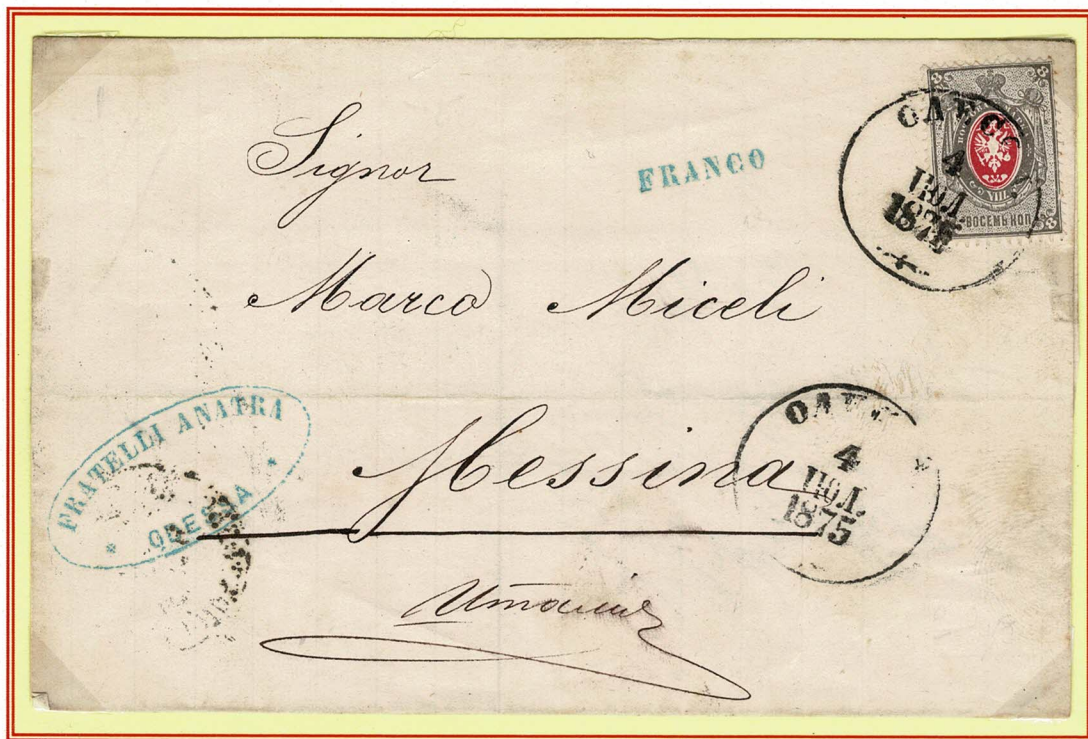 Signor
FRANCO
8 8
ОДЕС
4
ІЮЛ.
1875
VIII
ВОСЕМЬ КОП.
8
Marco Miceli
FRATELLI ANATRA
* ODESSA *
Messina
ОДЕС
4
ІЮЛ.
1875
Италія